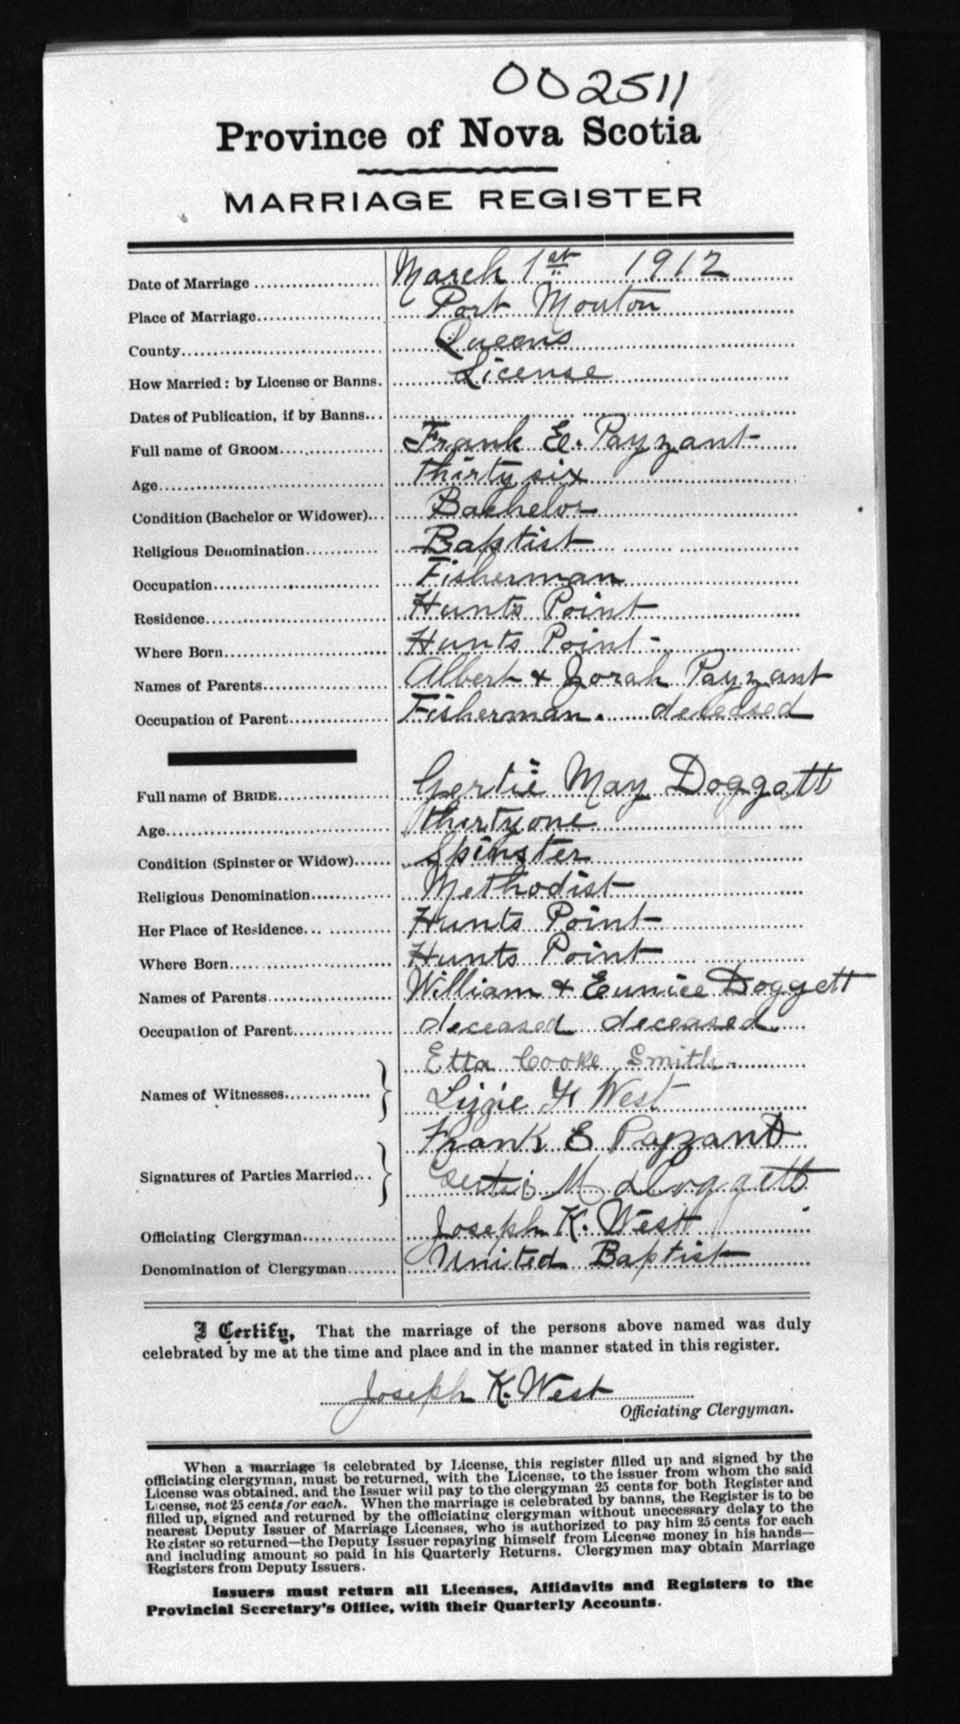 002511
Province of Nova Scotia
MARRIAGE REGISTER
Date of Marriage March 1st 1912
Place of Marriage Port Mouton
County Queens
How Married: by License or Banns. License
Dates of Publication, if by Banns
Full name of GROOM Frank E. Payzant
Age thirty six
Condition (Bachelor or Widower) Bachelor
Religious Denomination Baptist
Occupation Fisherman
Residence Hunts Point
Where Born Hunts Point
Names of Parents Albert & Zorah Payzant
Occupation of Parent Fisherman. deceased
Full name of BRIDE Gertie May Doggett
Age thirty one
Condition (Spinster or Widow) Spinster
Religious Denomination Methodist
Her Place of Residence Hunts Point
Where Born Hunts Point
Names of Parents William & Eunice Doggett
Occupation of Parent deceased deceased
Etta Cooke Smith
Names of Witnesses Lizzie H West
Frank E Payzant
Signatures of Parties Married Gertie M Doggett
Officiating Clergyman Joseph K. West
Denomination of Clergyman United Baptist
I Certify, That the marriage of the persons above named was duly
celebrated by me at the time and place and in the manner stated in this register.
Joseph K. West
Officiating Clergyman.
When a marriage is celebrated by License, this register filled up and signed by the
officiating clergyman, must be returned, with the License, to the issuer from whom the said
License was obtained, and the Issuer will pay to the clergyman 25 cents for both Register and
License, not 25 cents for each. When the marriage is celebrated by banns, the Register is to be
filled up, signed and returned by the officiating clergyman without unecessary delay to the
nearest Deputy Issuer of Marriage Licenses, who is authorized to pay him 25 cents for each
Register so returned—the Deputy Issuer repaying himself from License money in his hands—
and including amount so paid in his Quarterly Returns. Clergymen may obtain Marriage
Registers from Deputy Issuers.
Issuers must return all Licenses, Affidavits and Registers to the
Provincial Secretary's Office, with their Quarterly Accounts.